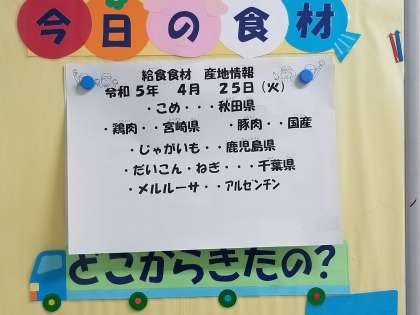 今日の食材
給食食材　産地情報
令和5年　4月　25日（火）
・こめ・・・秋田県
・鶏肉・・宮崎県　・豚肉・・国産
・じゃがいも・・鹿児島県
・だいこん・ねぎ・・・千葉県
・メルルーサ・・アルゼンチン
どこからきたの?